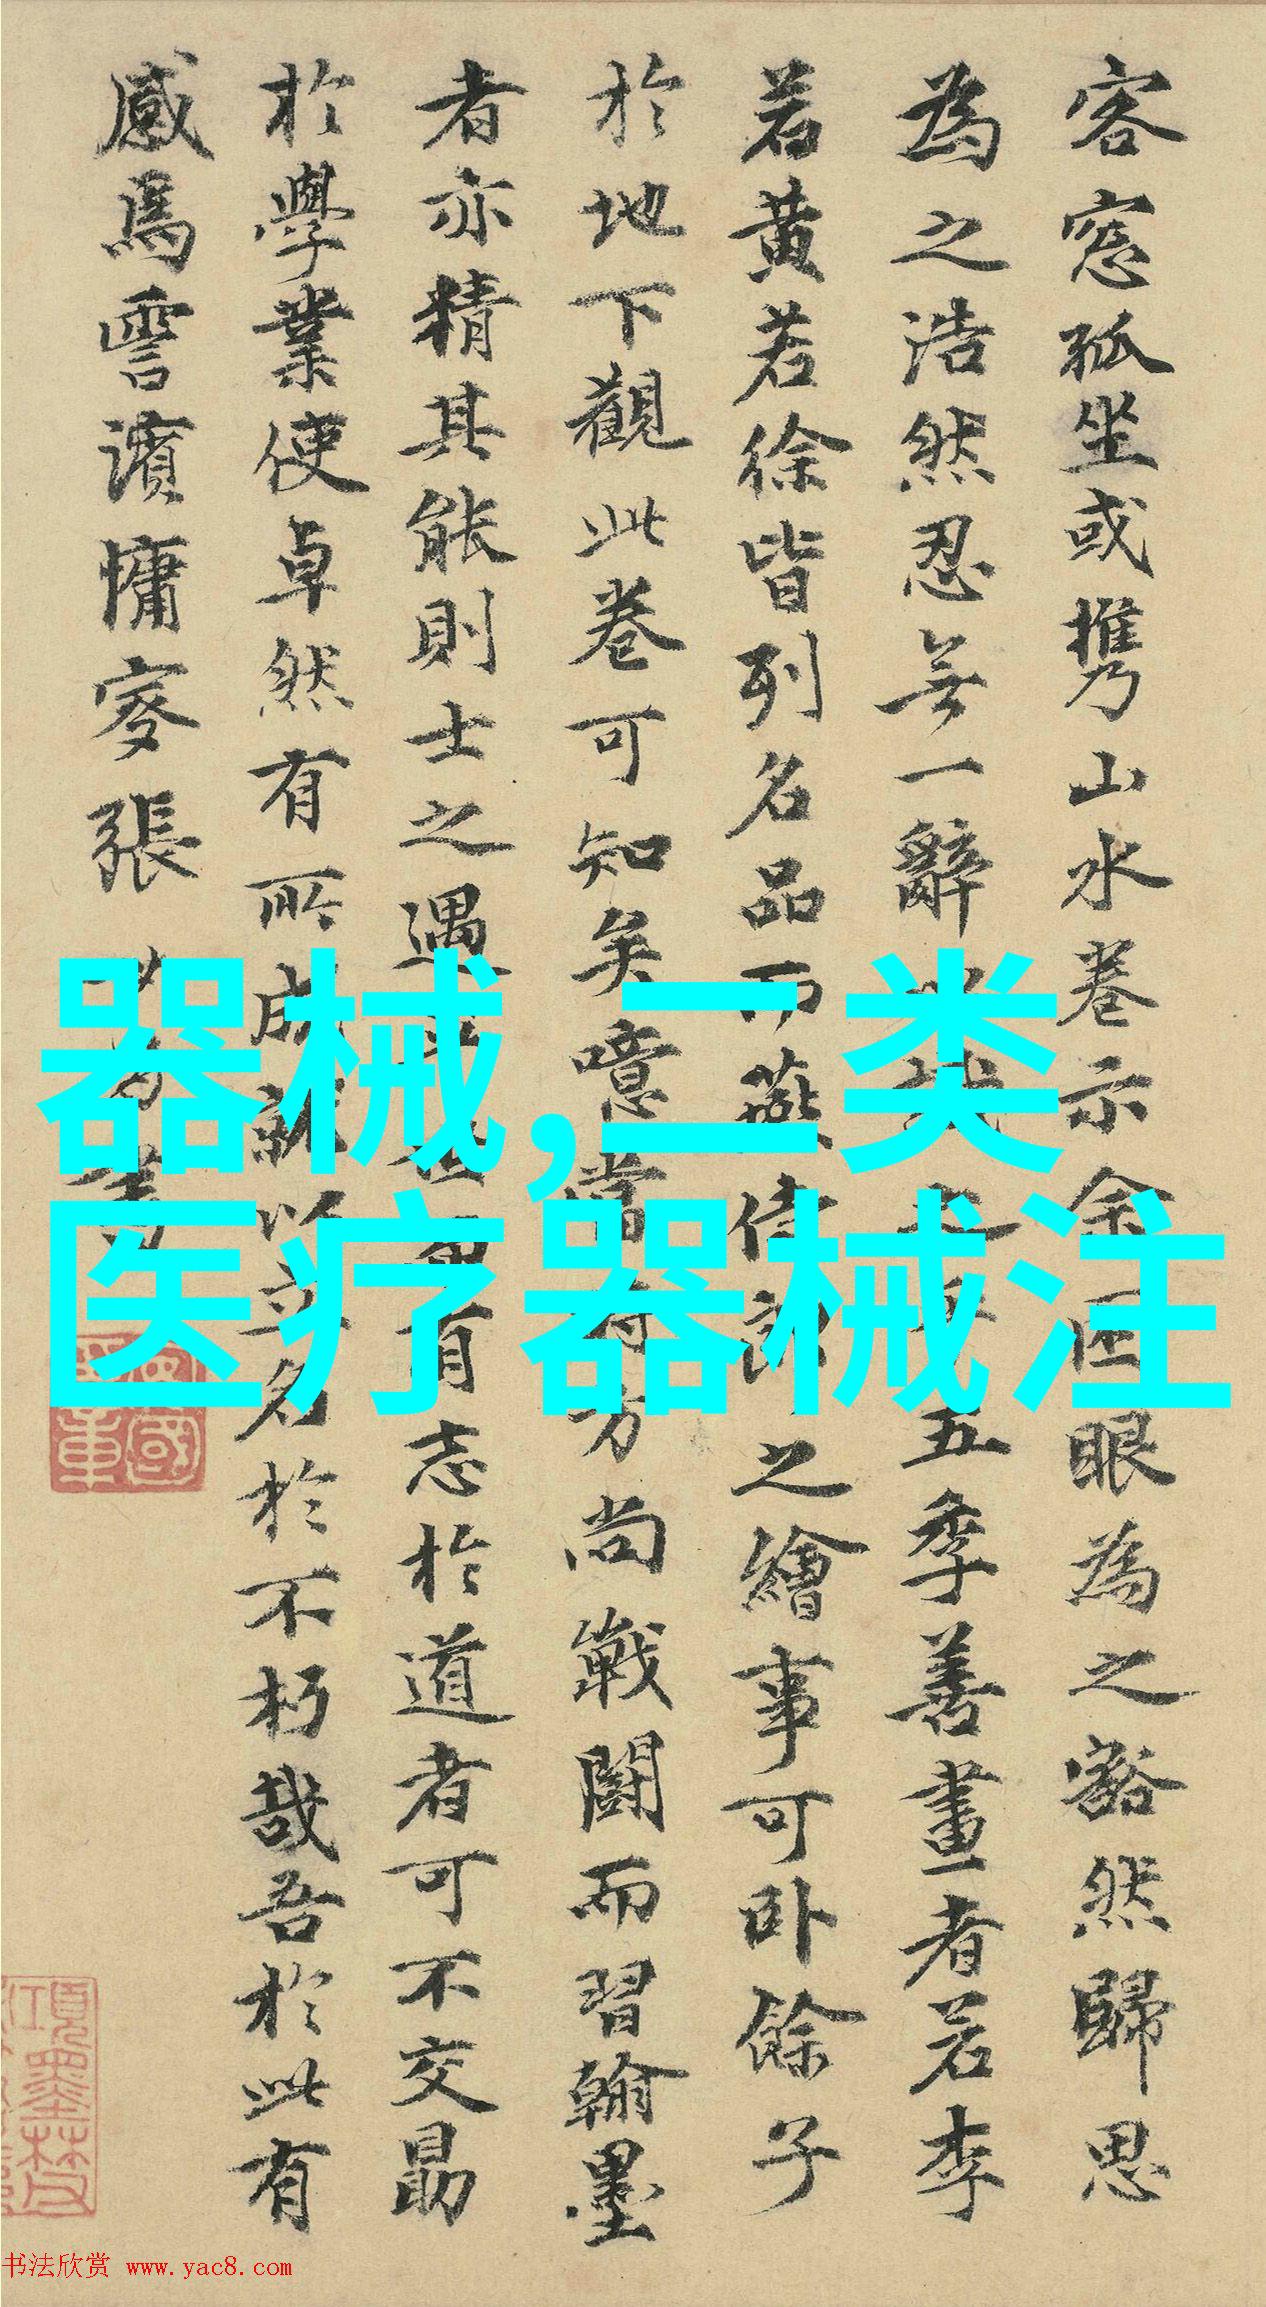 客窓孤坐或携山水卷示余匠眼為之豁然歸思
為之浩然忍無一辭五季善畫者若李
若黄若徐皆列名品而燕偉之繪事可卧餘子
於地下觀此卷可知矣噫當方尚戰鬪而習翰墨
者亦精其能則士之遇有志於道者可不交勗
於學業使卓然有所成就以名於不朽哉吾於此有
感焉雪濱慵叟張
器械,二类
医疗器械注
书法欣赏 www.yac8.com